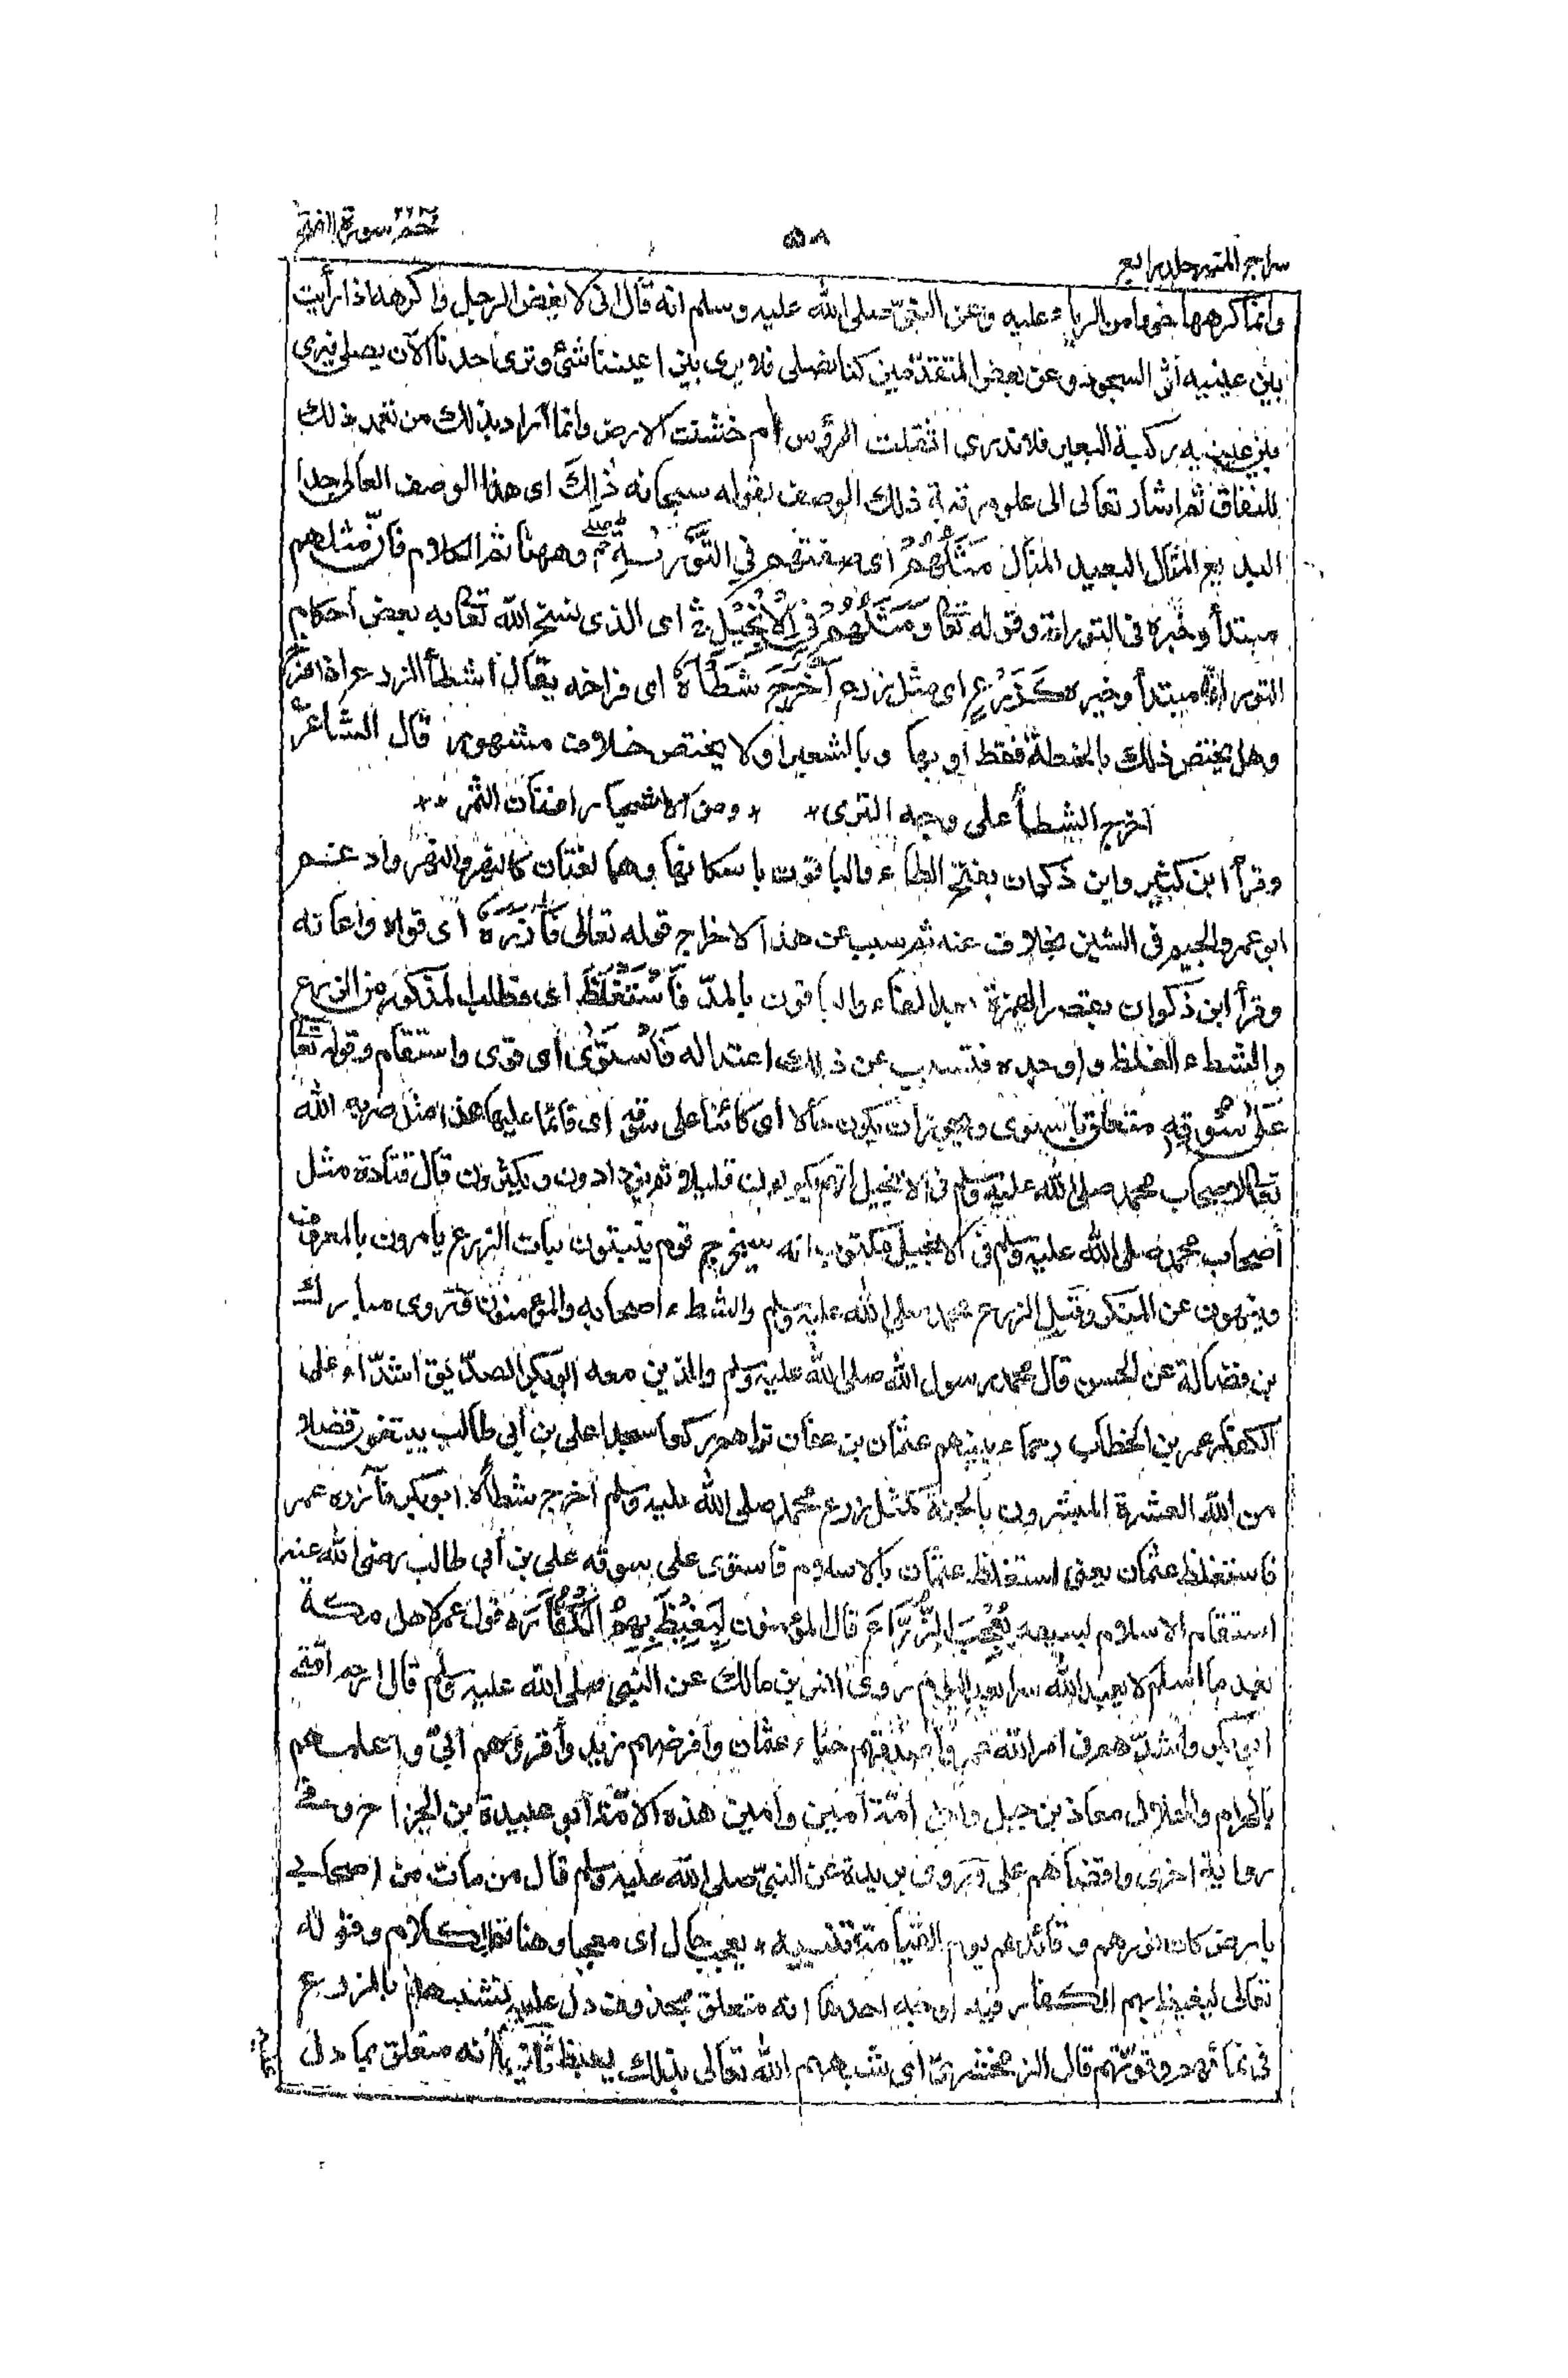 حٰمٓ ٢٦ سورة الفتح
٥٨
سراج المنير جلد رابع
وانما كرهها خوفا من الرياء عليه وعن النبىّ صلى الله عليه وسلم انه قال انى لا بغض الرجل واكرهه اذا رأيت
بين عينيه أثر السجود وعن بعض المتقدّمين كنا نصلى فلا يرى بين اعيننا شئ ونرى احدنا الآن يصلى فيرى
بين عينيه ركبة البعير فلا ندرى اثقلت الرؤس ام خشنت الارض وانما أراد بذلك من تعمد ذلك
للنفاق ثم اشار تعالى الى علو مرتبة ذلك الوصف بقوله سبحانه ذٰلِكَ اى هذا الوصف العالى جدا
البديع المثال البعيد المنال مَثَلُهُمْ اى صفتهم فِي التَّوْرٰىةِ وههنا تم الكلام فان مثلهم
مبتدأ وخبره فى التوراة وقوله تعالى وَمَثَلُهُمْ فِي الْاِنْجِيْلِ اى الذى نسخ الله تعالى به بعض أحكام
التوراة مبتدأ وخبره كَزَرْعٍ اى مثل زرع اَخْرَجَ شَطْـَٔهٗ اى فراخه يقال أشطأ الزرع اذا فرّخ
وهل يختص ذلك بالحنطة فقط أو بها وبالشعير او لا يختص خلاف مشهور قال الشاعر
اخرج الشطأ على وجه الثرى * * ومن الاشجار افنان الثمر **
وقرأ ابن كثير وابن ذكوان بفتح الطاء والباقون باسكانها وهما لغتان كالنهر والنهر وادغم
ابو عمرو الجيم فى الشين بخلاف عنه ثم سبب عن هذا الاخراج قوله تعالى فَاٰزَرَهٗ اى قواه واعانه
وقرأ ابن ذكوان بقصر الهمزة بعد الفاء والباقون بالمدّ فَاسْتَغْلَظَ اى فطلب المذكور من الزرع
والشطء الغلظ واوجده فتسبب عن ذلك اعتداله فَاسْتَوٰى أى قوى واستقام وقوله تعالى
عَلٰى سُوْقِهٖ متعلق باستوى ويجوز ان يكون حالا أى كائنا على سوقه اى قائما عليها هذا مثل ضربه الله
تعالى لاصحاب محمد صلى الله عليه وسلم فى الانجيل انهم يكونون قليلا ثم يزدادون ويكثرون قال قتادة مثل
أصحاب محمد صلى الله عليه وسلم فى الانجيل مكتوب انه سيخرج قوم ينبتون نبات الزرع يامرون بالمعروف
وينهون عن المنكر وقيل الزرع محمد صلى الله عليه وسلم والشطء اصحابه والمؤمنون وروى مبارك
بن فضالة عن الحسن قال محمد رسول الله صلى الله عليه وسلم والذين معه ابو بكر الصدّيق اشدّاء على
الكفار عمر بن الخطاب رحماء بينهم عثمان بن عفان تراهم ركعا سجدا على بن أبى طالب يبتغون فضلا
من الله العشرة المبشرون بالجنة كمثل زرع محمد صلى الله عليه وسلم أخرج شطأه ابو بكر فآزره عمر
فاستغلظ عثمان يعنى استغلظ عثمان بالاسلام فاستوى على سوقه على بن أبى طالب رضى الله عنه
استقام الاسلام بسيفه يُعْجِبُ الزُّرَّاعَ قال المؤمنون لِيَغِيْظَ بِهِمُ الْكُفَّارَ قول عمر لاهل مكة
بعد ما اسلم لا يعبد الله سرا بعد اليوم روى انس بن مالك عن النبى صلى الله عليه وسلم قال ارحم أمّتى
ابو بكر واشدّهم فى امر الله عمر وأصدقهم حياء عثمان وأفرضهم زيد وأقرؤهم أبىّ واعلمهم
بالحرام والحلال معاذ بن جبل ولكل امّة أمين وأمين هذه الامّة أبو عبيدة بن الجراح وفى
رواية اخرى واقضاهم على وروى بريدة عن النبىّ صلى الله عليه وسلم قال من مات من اصحابى
بارض كان نورهم وقائدهم يوم القيامة تنبيه * يعجب حال اى معجبا وهنا تم الكلام وقوله
تعالى ليغيظ بهم الكفار فيه اوجه احدها انه متعلق بمحذوف دل عليه تشبيههم بالزرع
فى نمائهم وقوّتهم قال الزمخشرىّ اى شبههم الله تعالى بذلك ليغيظ ثانيها أنه متعلق بما دل